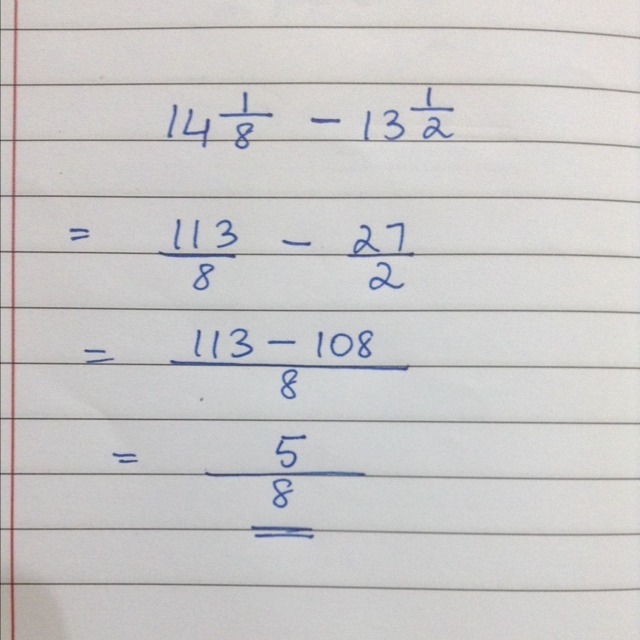 14 1/8 - 13 1/2
= 113/8 - 27/2
= (113 - 108)/8
= 5/8